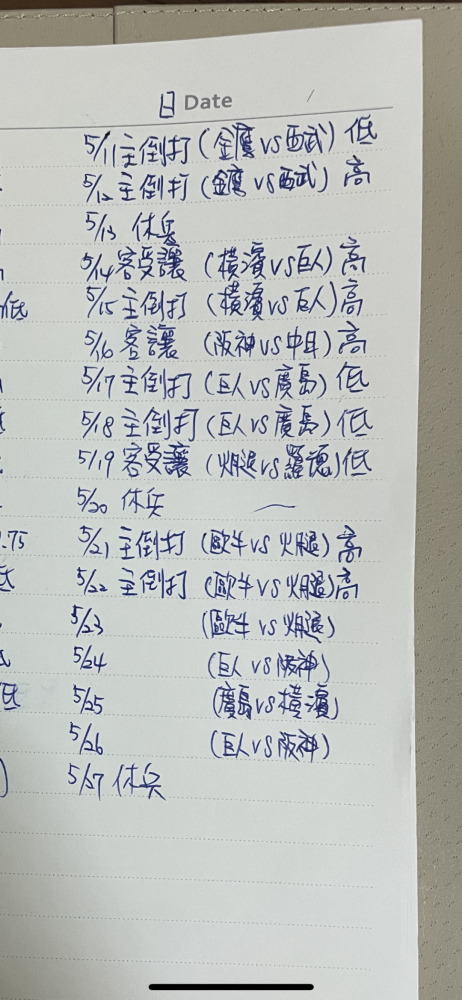 日 Date
5/11 主倒打 (金鷹 vs 西武) 低
5/12 主倒打 (金鷹 vs 西武) 高
5/13 休兵
5/14 客受讓 (橫濱 vs 巨人) 高
低 5/15 主倒打 (橫濱 vs 巨人) 高
5/16 客讓 (阪神 vs 中日) 高
5/17 主倒打 (巨人 vs 廣島) 低
5/18 主倒打 (巨人 vs 廣島) 低
5/19 客受讓 (火腿 vs 羅德) 低
5/20 休兵
.75 5/21 主倒打 (歐牛 vs 火腿) 高
5/22 主倒打 (歐牛 vs 火腿) 高
5/23 (歐牛 vs 火腿)
5/24 (巨人 vs 阪神)
低 5/25 (廣島 vs 橫濱)
5/26 (巨人 vs 阪神)
) 5/27 休兵